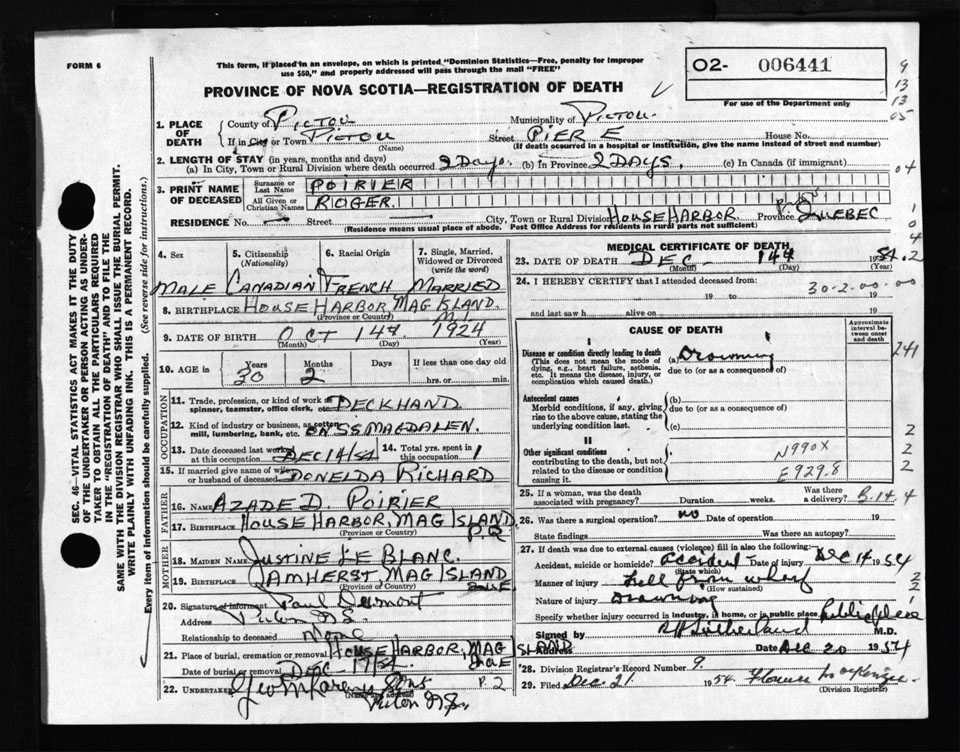 FORM 6
This form, if placed in an envelope, on which is printed "Dominion Statistics—Free, penalty for improper
use $50," and properly addressed will pass through the mail "FREE"
O2- 006441
For use of the Department only
PROVINCE OF NOVA SCOTIA—REGISTRATION OF DEATH
9
13
13
05
04
1
0
4
2
SEC. 46—VITAL STATISTICS ACT MAKES IT THE DUTY
OF THE UNDERTAKER OR PERSON ACTING AS UNDER-
TAKER TO OBTAIN ALL THE PARTICULARS REQUIRED
IN THE "REGISTRATION OF DEATH" AND TO FILE THE
SAME WITH THE DIVISION REGISTRAR WHO SHALL ISSUE THE BURIAL PERMIT.
WRITE PLAINLY WITH UNFADING INK. THIS IS A PERMANENT RECORD.
Every item of information should be carefully supplied. (See reverse side for instructions.)
1. PLACE OF DEATH
County of PICTOU Municipality of PICTOU
If in City or Town PICTOU Street PIER E House No.
(Name) (If death occurred in a hospital or institution, give the name instead of street and number)
2. LENGTH OF STAY (in years, months and days)
(a) In City, Town or Rural Division where death occurred 2 Days. (b) In Province 2 DAYS. (c) In Canada (if immigrant)
3. PRINT NAME OF DECEASED
Surname or Last Name POIRIER
All Given or Christian Names ROGER.
RESIDENCE No. Street City, Town or Rural Division HOUSE HARBOR Province QUEBEC
(Residence means usual place of abode. Post Office Address for residents in rural parts not sufficient)
4. Sex 5. Citizenship (Nationality) 6. Racial Origin 7. Single, Married, Widowed or Divorced (write the word)
MALE CANADIAN FRENCH MARRIED
8. BIRTHPLACE HOUSE HARBOR MAG ISLAND.
(Province or Country)
9. DATE OF BIRTH OCT 14th 1924
(Month) (Day) (Year)
10. AGE in Years Months Days If less than one day old
30 2 hrs. or min.
OCCUPATION
11. Trade, profession, or kind of work as spinner, teamster, office clerk, etc. DECKHAND
12. Kind of industry or business, as cotton mill, lumbering, bank, etc. ON SS MAGDALEN.
13. Date deceased last worked at this occupation DEC 14/54 14. Total yrs. spent in this occupation 1
15. If married give name of wife or husband of deceased DONELDA RICHARD
FATHER
16. Name AZADE D. POIRIER
17. BIRTHPLACE HOUSE HARBOR, MAG ISLAND
(Province or Country) P.Q
MOTHER
18. MAIDEN NAME JUSTINE LE BLANC.
19. BIRTHPLACE AMHERST, MAG ISLAND
(Province or Country)
20. Signature of informant Paul
Address Pictou N.S.
Relationship to deceased None
21. Place of burial, cremation or removal HOUSE HARBOR, MAG ISLAND
Date of burial or removal DEC 17/54
22. UNDERTAKER Sons P.Q
(Name and address) Pictou N.S.
MEDICAL CERTIFICATE OF DEATH
23. DATE OF DEATH DEC 14th 1954
(Month) (Day) (Year)
24. I HEREBY CERTIFY that I attended deceased from:
30-2-00-00
19 to 19
and last saw h alive on 19
CAUSE OF DEATH
Approximate interval between onset and death
I
Disease or condition directly leading to death
(This does not mean the mode of dying, e.g., heart failure, asthenia, etc. It means the disease, injury, or complication which caused death.)
(a) Drowning
due to (or as a consequence of)
241
Antecedent causes
Morbid conditions, if any, giving rise to the above cause, stating the underlying condition last.
(b)
due to (or as a consequence of)
(c)
II
Other significant conditions
contributing to the death, but not related to the disease or condition causing it.
N990X
E929.8
2
2
2
25. If a woman, was the death associated with pregnancy? Duration weeks. Was there a delivery? B-14. 4
26. Was there a surgical operation? no Date of operation 19
State findings Was there an autopsy?
27. If death was due to external causes (violence) fill in also the following:
Accident, suicide or homicide? Accident Date of injury Dec 14 1954
(State which)
Manner of injury Fell from wharf
(How sustained)
Nature of injury Drowning
Specify whether injury occurred in industry, in home, or in public place Public place
2
2
1
Signed by R H Sutherland M.D.
Address Date Dec 20 1954
28. Division Registrar's Record Number 9.
29. Filed Dec. 21 1954. Florence MacKenzie
(Division Registrar)